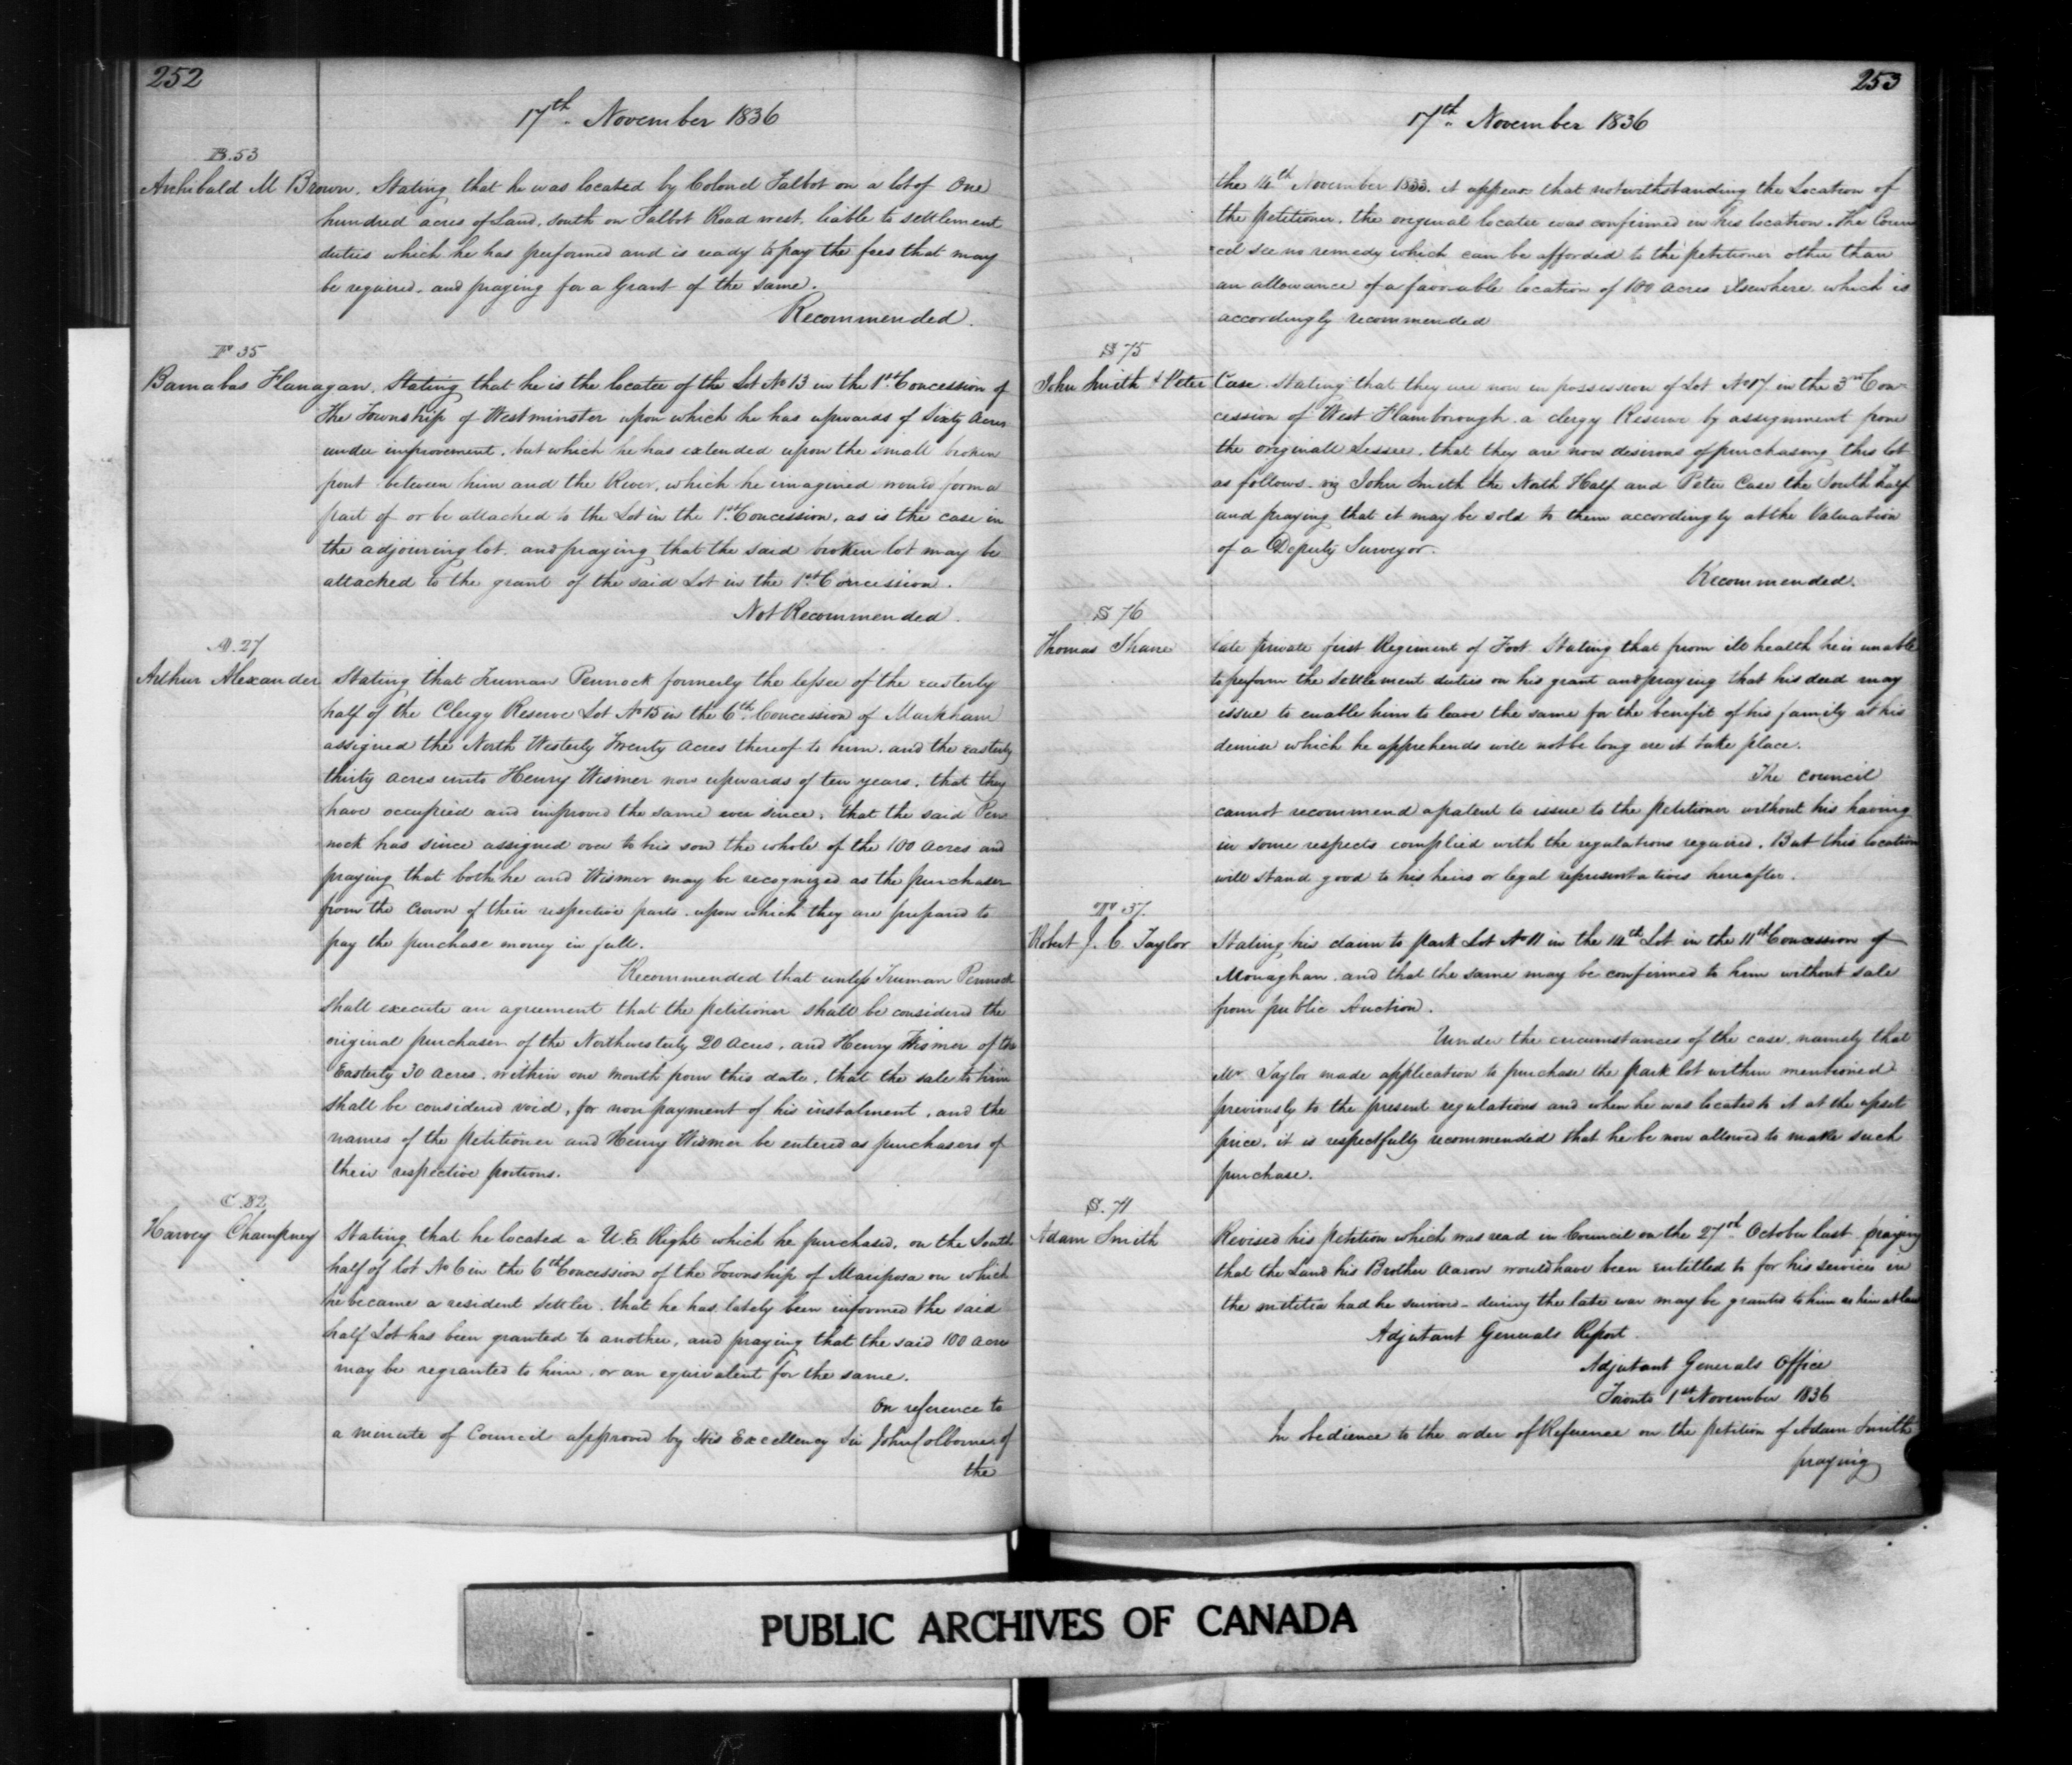 252
17th. November 1836
B.53
Archibald M Brown. Stating that he was located by Colonel Talbot on a lot of One
hundred acres of Land, south on Talbot Road west, liable to settlement
duties which he has performed and is ready to pay the fees that may
be required, and praying for a Grant of the same.
Recommended.
F 35
Barnabas Flanagan. Stating that he is the locatee of the Lot No 13 in the 1st Concession of
the Township of Westminster upon which he has upwards of Sixty Acres
under improvement, but which he has extended upon the small broken
front between him and the River, which he imagined would form a
part of or be attached to the Lot in the 1st Concession, as is the case in
the adjoining lot. and praying that the said broken lot may be
attached to the grant of the said Lot in the 1st Concession.
Not Recommended.
A.27
Arthur Alexander Stating that Truman Pennock formerly the lessee of the easterly
half of the Clergy Reserve Lot No 15 in the 6th Concession of Markham
assigned the North Westerly Twenty Acres thereof to him, and the easterly
thirty acres unto Henry Wismer now upwards of ten years, that they
have occupied and improved the same ever since, that the said Pen
nock has since assigned over to his son the whole of the 100 acres and
praying that both he and Wismer may be recognized as the purchasers
from the Crown of their respective parts, upon which they are prepared to
pay the purchase money in full.
Recommended that unless Truman Pennock
shall execute an agreement that the petitioner shall be considered the
original purchaser of the Northwesterly 20 Acres, and Henry Wismer of the
Easterly 30 Acres, within one month from this date, that the sale to him
shall be considered void, for non payment of his instalment, and the
names of the petitioner and Henry Wismer be entered as purchasers of
their respective portions.
C.82
Harvey Champney Stating that he located a U.E. Right which he purchased, on the South
half of lot No 6 in the 6th Concession of the Township of Mariposa on which
he became a resident settler. that he has lately been informed the said
half Lot has been granted to another, and praying that the said 100 acres
may be regranted to him, or an equivalent for the same.
On reference to
a minute of Council approved by His Excellency Sir John Colborne of
the
253
17th. November 1836
the 14th November 1833. it appears that notwithstanding the Location of
the Petitioner, the original locatee was confirmed in his location. The Coun
cil see no remedy which can be afforded to the petitioner other than
an allowance of a favorable location of 100 acres elsewhere which is
accordingly recommended
S 75
John Smith & Peter Case. Stating that they are now in possession of Lot No 17 in the 3rd Con-
cession of West Flamborough a clergy Reserve by assignment from
the originall Lessee. that they are now desirous of purchasing this lot
as follows. viz John Smith the North Half and Peter Case the South half
and praying that it may be sold to them accordingly at the Valuation
of a Deputy Surveyor.
Recommended.
S 76
Thomas Shane late private first Regiment of Foot. Stating that from ill health he is unable
to perform the settlement duties on his grant and praying that his deed may
issue to enable him to leave the same for the benefit of his family at his
demise which he apprehends will not be long ere it take place.
The council
cannot recommend a patent to issue to the petitioner without his having
in some respects complied with the regulations required. But this location
will stand good to his heirs or legal representatives hereafter.
T 37.
Robert J. C. Taylor Stating his claim to Park Lot No 11 in the 14th Lot in the 11th Concession of
Monaghan, and that the same may be confirmed to him without sale
from public Auction.
Under the circumstances of the case, namely that
Mr. Taylor made application to purchase the park lot within mentioned
previously to the present regulations and when he was located to it at the upset
price, it is respectfully recommended that he be now allowed to make such
purchase.
S. 71
Adam Smith Revised his petition which was read in Council on the 27th October last praying
that the Land his Brother Aaron would have been entitled to for his services in
the militia had he survived during the late war may be granted to him as heir at law
Adjutant Generals Report.
Adjutant Generals Office
Toronto 1st November 1836
In obedience to the order of Reference on the petition of Adam Smith
praying
PUBLIC ARCHIVES OF CANADA